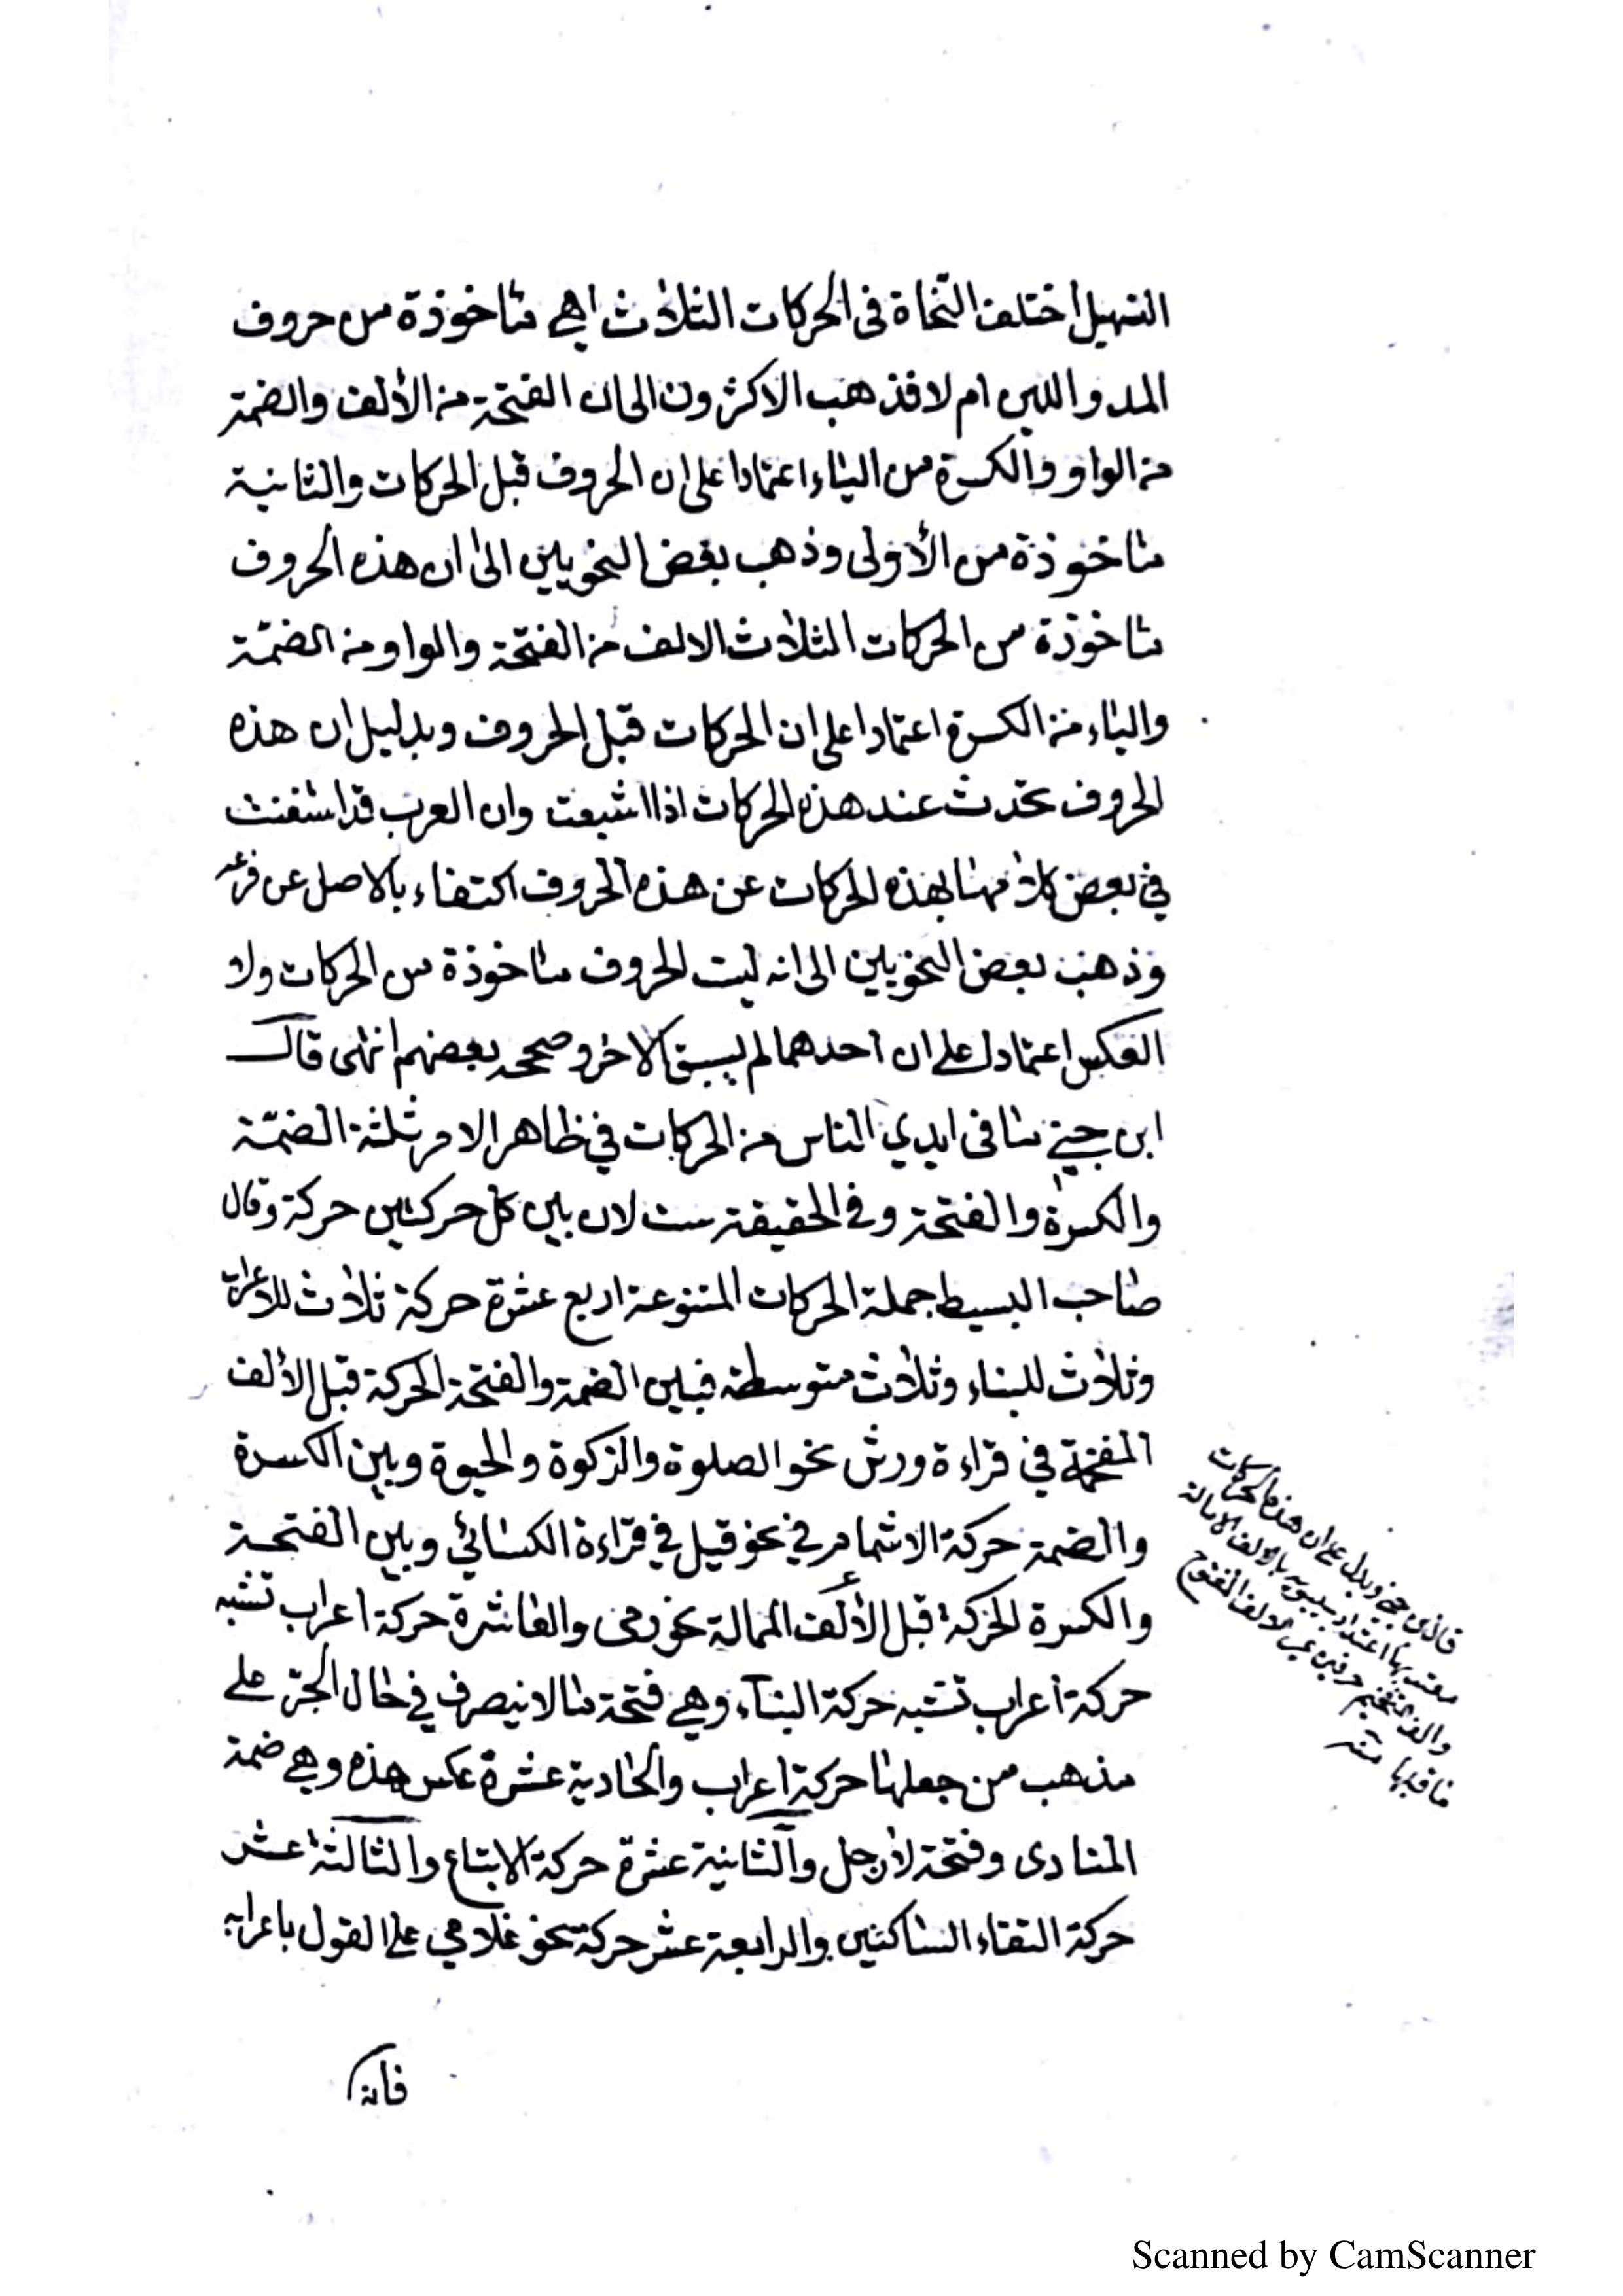 التسهيل اختلف النحاة فى الحركات الثلاث اهي مأخوذة من حروف
المد واللين ام لا فذهب الاكثرون الى ان الفتحة من الألف والضمة
من الواو والكسرة من الياء اعتمادا على ان الحروف قبل الحركات والثانية
مأخوذة من الأولى وذهب بعض النحويين الى ان هذه الحروف
مأخوذة من الحركات الثلاث الالف من الفتحة والواو من الضمة
والياء من الكسرة اعتمادا على ان الحركات قبل الحروف وبدليل ان هذه
الحروف تحدث عند هذه الحركات اذا اشبعت وان العرب قد استغنت
في بعض كلامها بهذه الحركات عن هذه الحروف اكتفاء بالاصل عن فرعه
وذهب بعض النحويين الى انه ليست الحروف مأخوذة من الحركات ولا
العكس اعتمادا على ان احدهما لم يسبق الاخر وصححه بعضهم انتهى قال
ابن جني ما فى ايدي الناس من الحركات في ظاهر الامر ثلثة الضمة
والكسرة والفتحة وفي الحقيقة ست لان بين كل حركتين حركة وقال
صاحب البسيط جملة الحركات المتنوعة اربع عشرة حركة ثلاث للاعراب
وثلاث للبناء وثلاث متوسطة فبين الضمة والفتحة الحركة قبل الألف
المفخمة في قراءة ورش نحو الصلوة والزكوة والحيوة وبين الكسرة
والضمة حركة الاشمام في نحو قيل في قراءة الكسائي وبين الفتحة
والكسرة الحركة قبل الألف الممالة نحو رمى والعاشرة حركة اعراب تشبه
حركة اعراب تشبه حركة البنآء وهي فتحة مالا ينصرف في حال الجر على
مذهب من جعلها حركة اعراب والحادية عشرة عكس هذه وهي ضمة
المنادى وفتحة لا رجل والثانية عشرة حركة الاتباع والثالثة عشر
حركة التقاء الساكنين والرابعة عشر حركة نحو غلامي على القول باعرابه
قال ابن جني ويدل على ان هذه الحركات
معتد بها اعتداد سيبويه بالف الامالة
والف التفخيم حرفين غير الالف المفتوح
ما قبلها
فانه